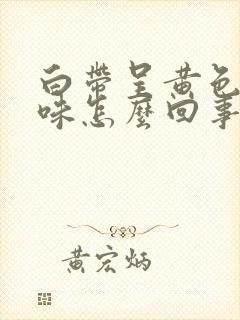 白帶呈黃色
味怎麼回事
黃宏炳